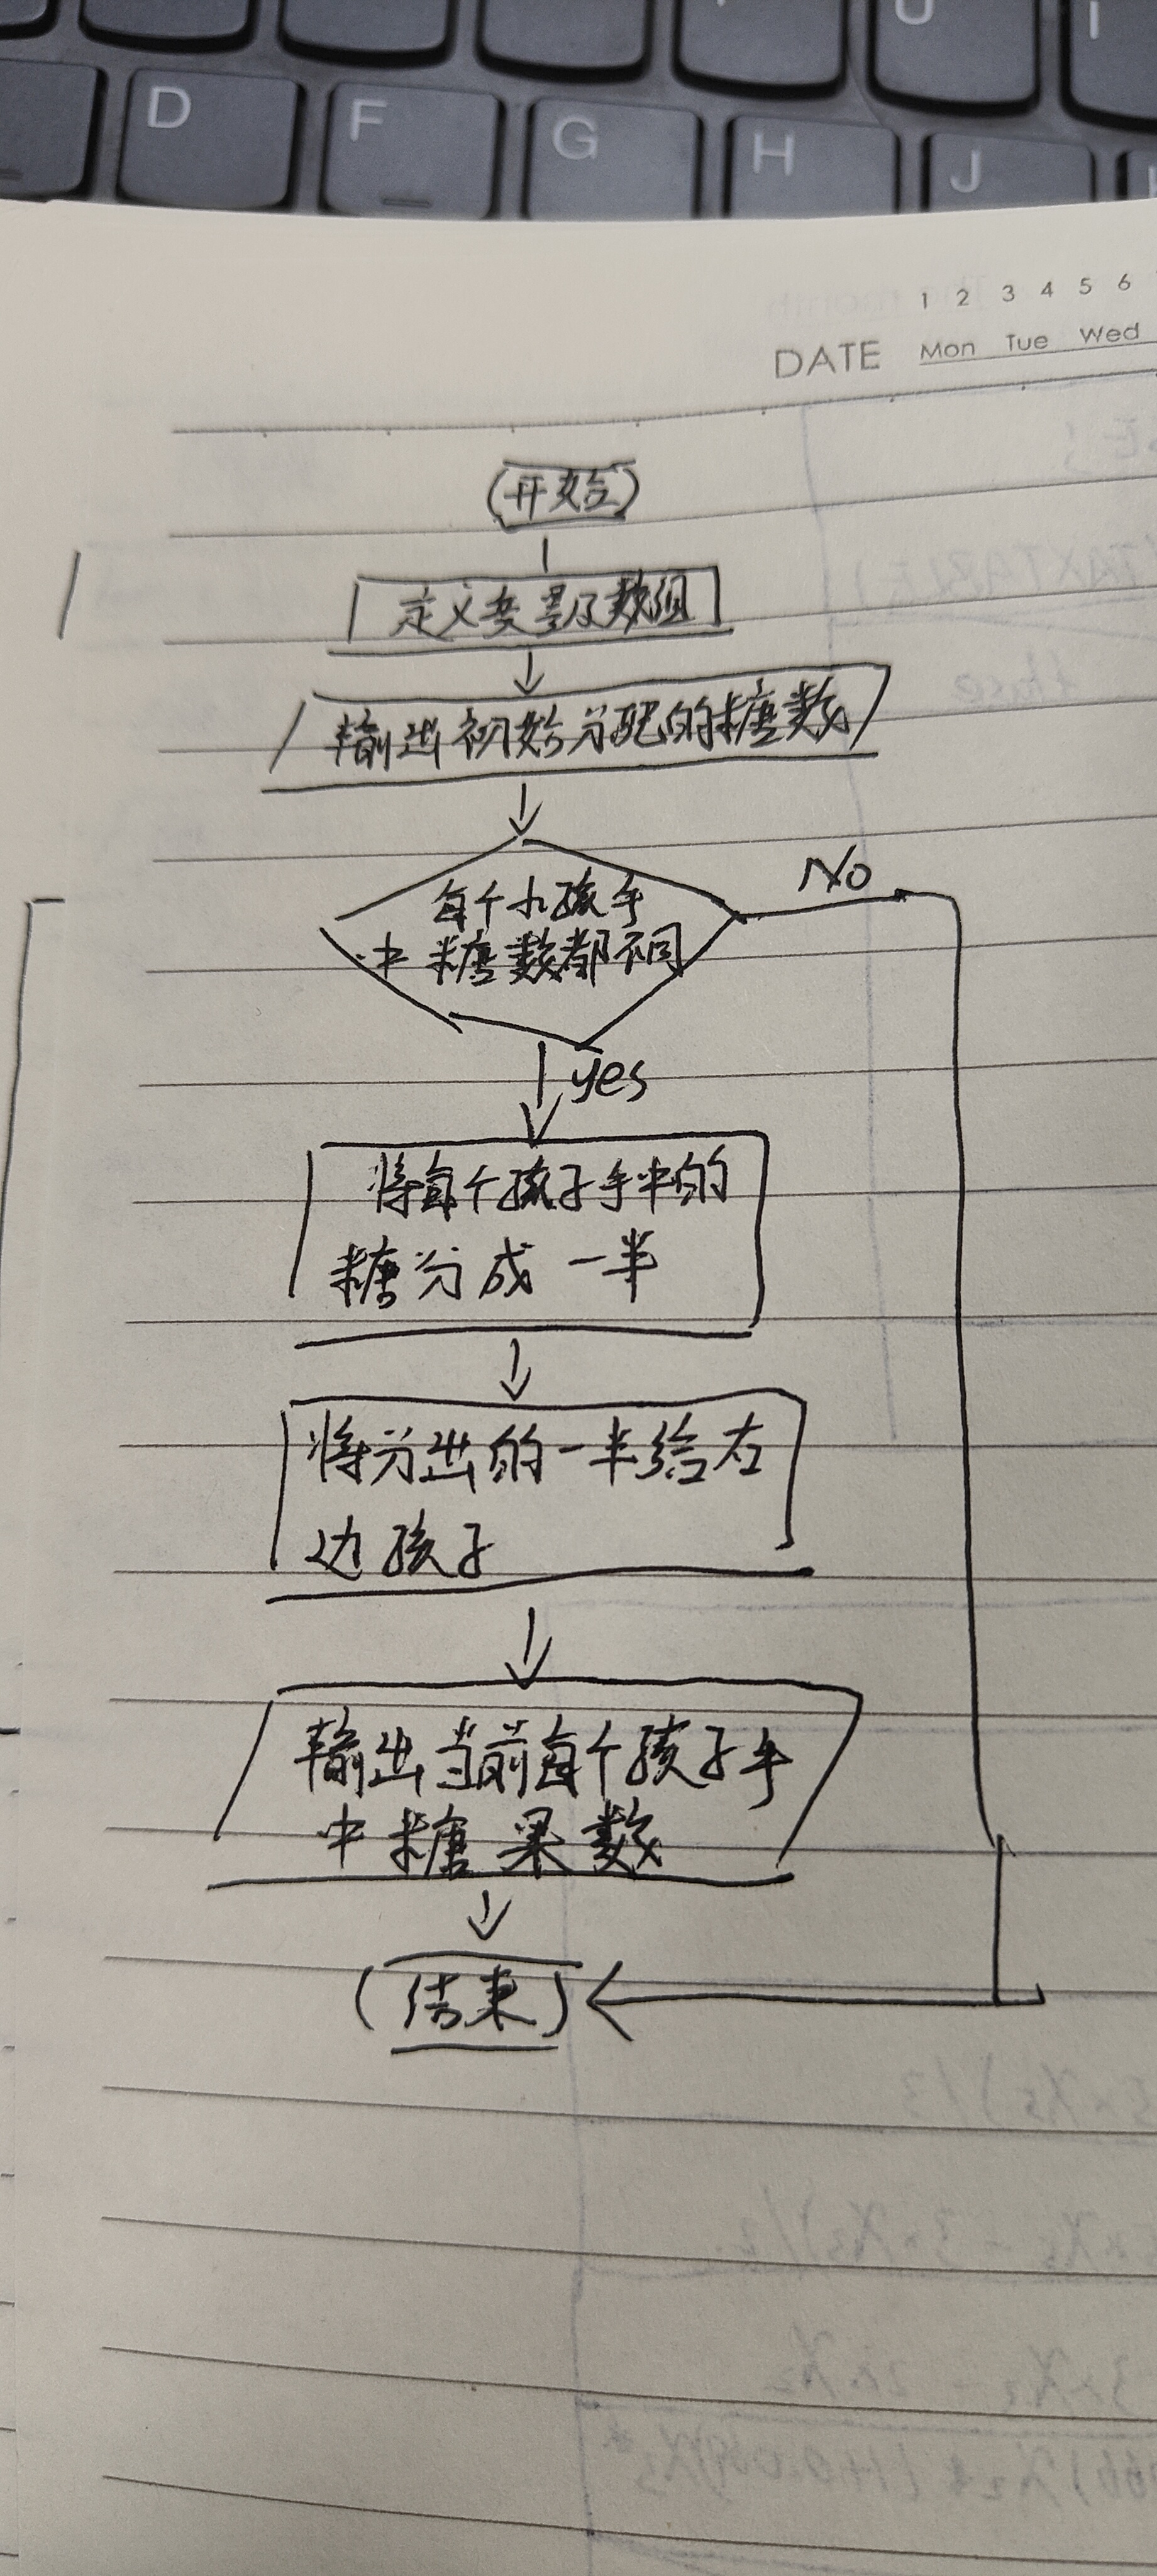 U I
D F G H J
1 2 3 4 5 6
DATE Mon Tue Wed
开始
定义变量及数组
输出初始分配的糖数
每个小孩手
中糖数都不同
No
yes
将每个孩子手中的
糖分成一半
将分出的一半给右
边孩子
输出当前每个孩子手
中糖果数
结束